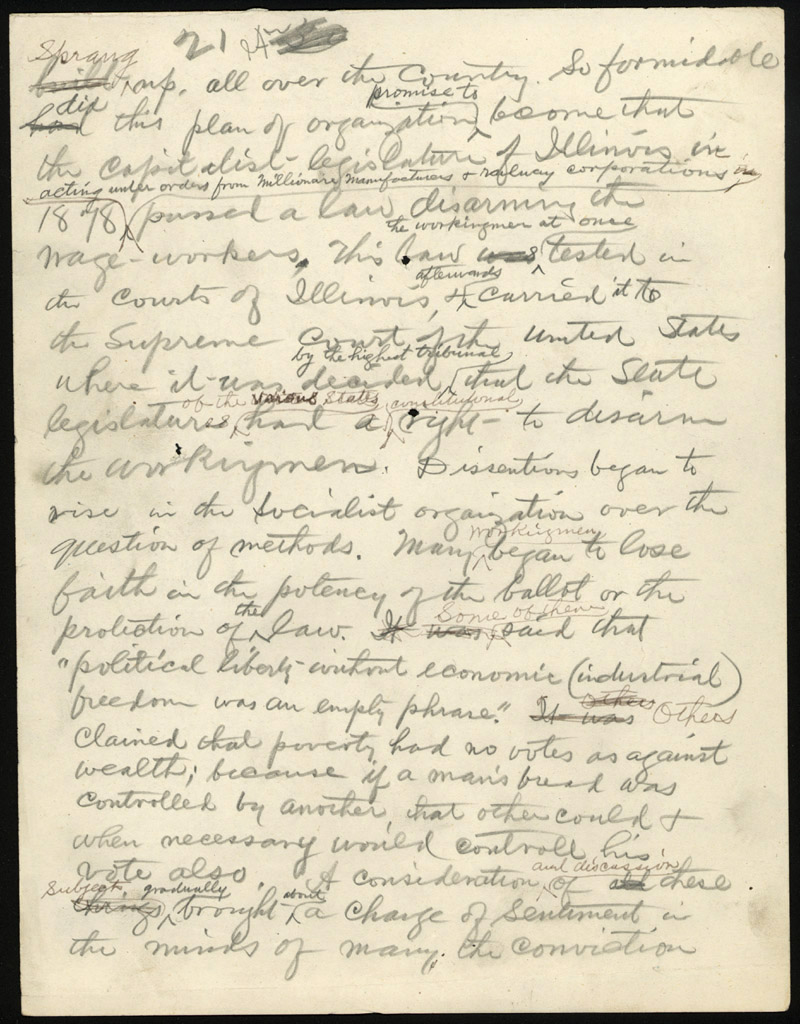 21
Sprang
built up, all over the Country. So formidable
did promise to
had this plan of organization become that
the capitalist-legislature of Illinois in
acting under orders from Millionaire Manufacturers & railway corporations in
1878 passed a law disarming the
the workingmen at once
wage-workers. This law was tested in
afterwards
the Courts of Illinois, & carried it to
the Supreme Court of the United States
by the highest tribunal
where it was decided, that the State
of the various States constitutional
legislatures had a right to disarm
the workingmen. Dissentions began to
rise in the Socialist organization over the
question of methods. Many workingmen began to lose
faith in the potency of the ballot or the
protection of the law. It was Some of them said that
"political liberty without economic (industrial)
others
freedom was an empty phrase." It was Others
Claimed that poverty had no votes as against
wealth; because if a man's bread was
controlled by another, that other could &
when necessary would controll his
and discussion
vote also. A consideration of all these
Subject, gradually about
things brought a change of Sentiment in
the minds of many, the conviction